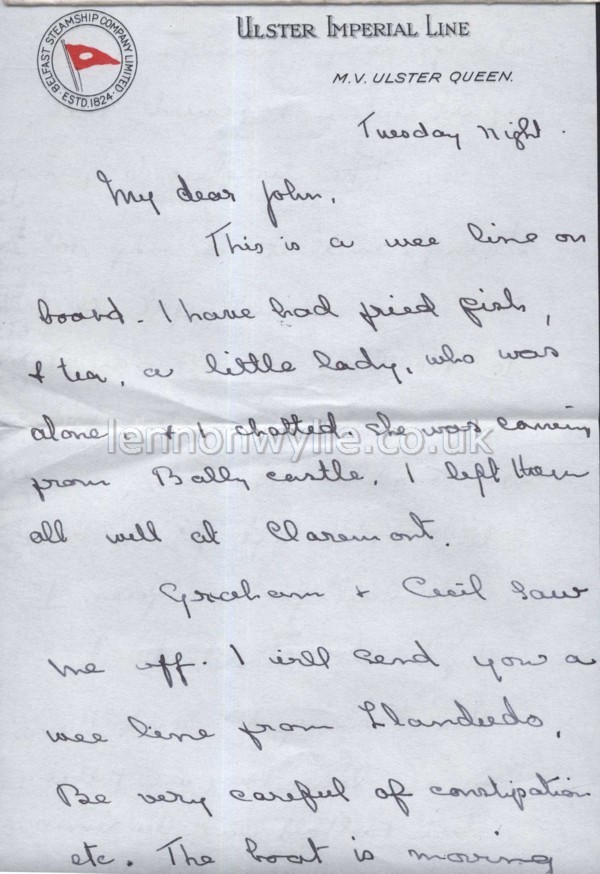 BELFAST STEAMSHIP COMPANY LIMITED
· ESTD. 1824 ·
ULSTER IMPERIAL LINE
M.V. ULSTER QUEEN.
Tuesday night.
My dear John,
This is a wee line on
board. I have had fried fish,
& tea, a little lady, who was
alone, & I chatted, she was coming
lennonwylie.co.uk
from Bally castle. I left them
all well at Claremont.
Graham & Cecil saw
me off. I will send you a
wee line from Llandudo,
Be very careful of constipation
etc. The boat is moving